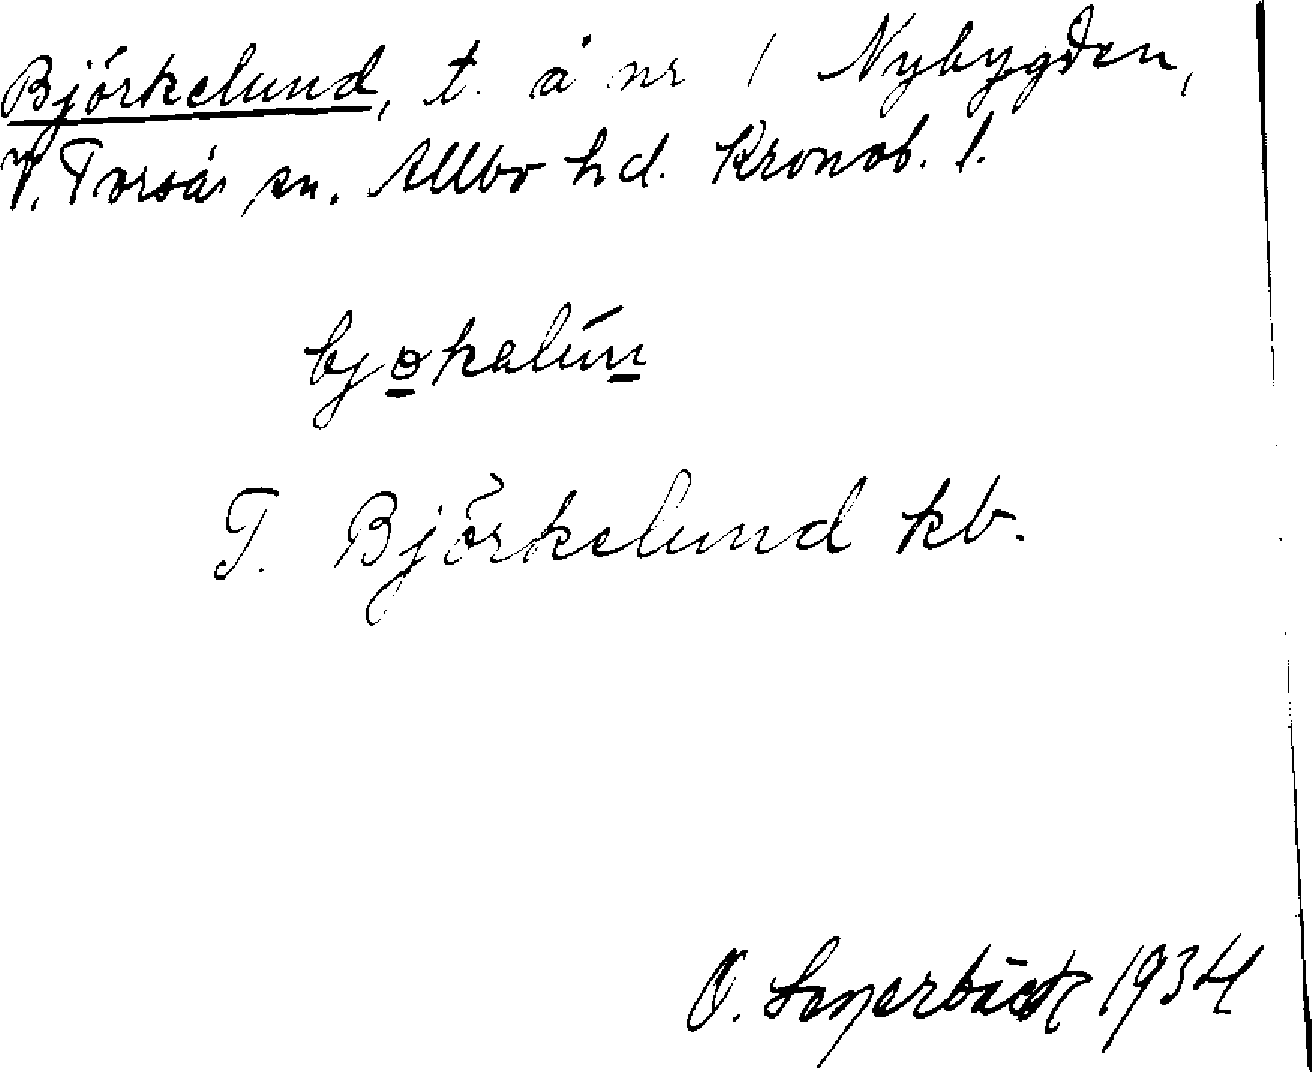 Björkelund, t. å nr 1 Nybygden,
V. Torsås sn. Allbo hd. Kronob. l.
T. Björkelund kb.
O. 1934